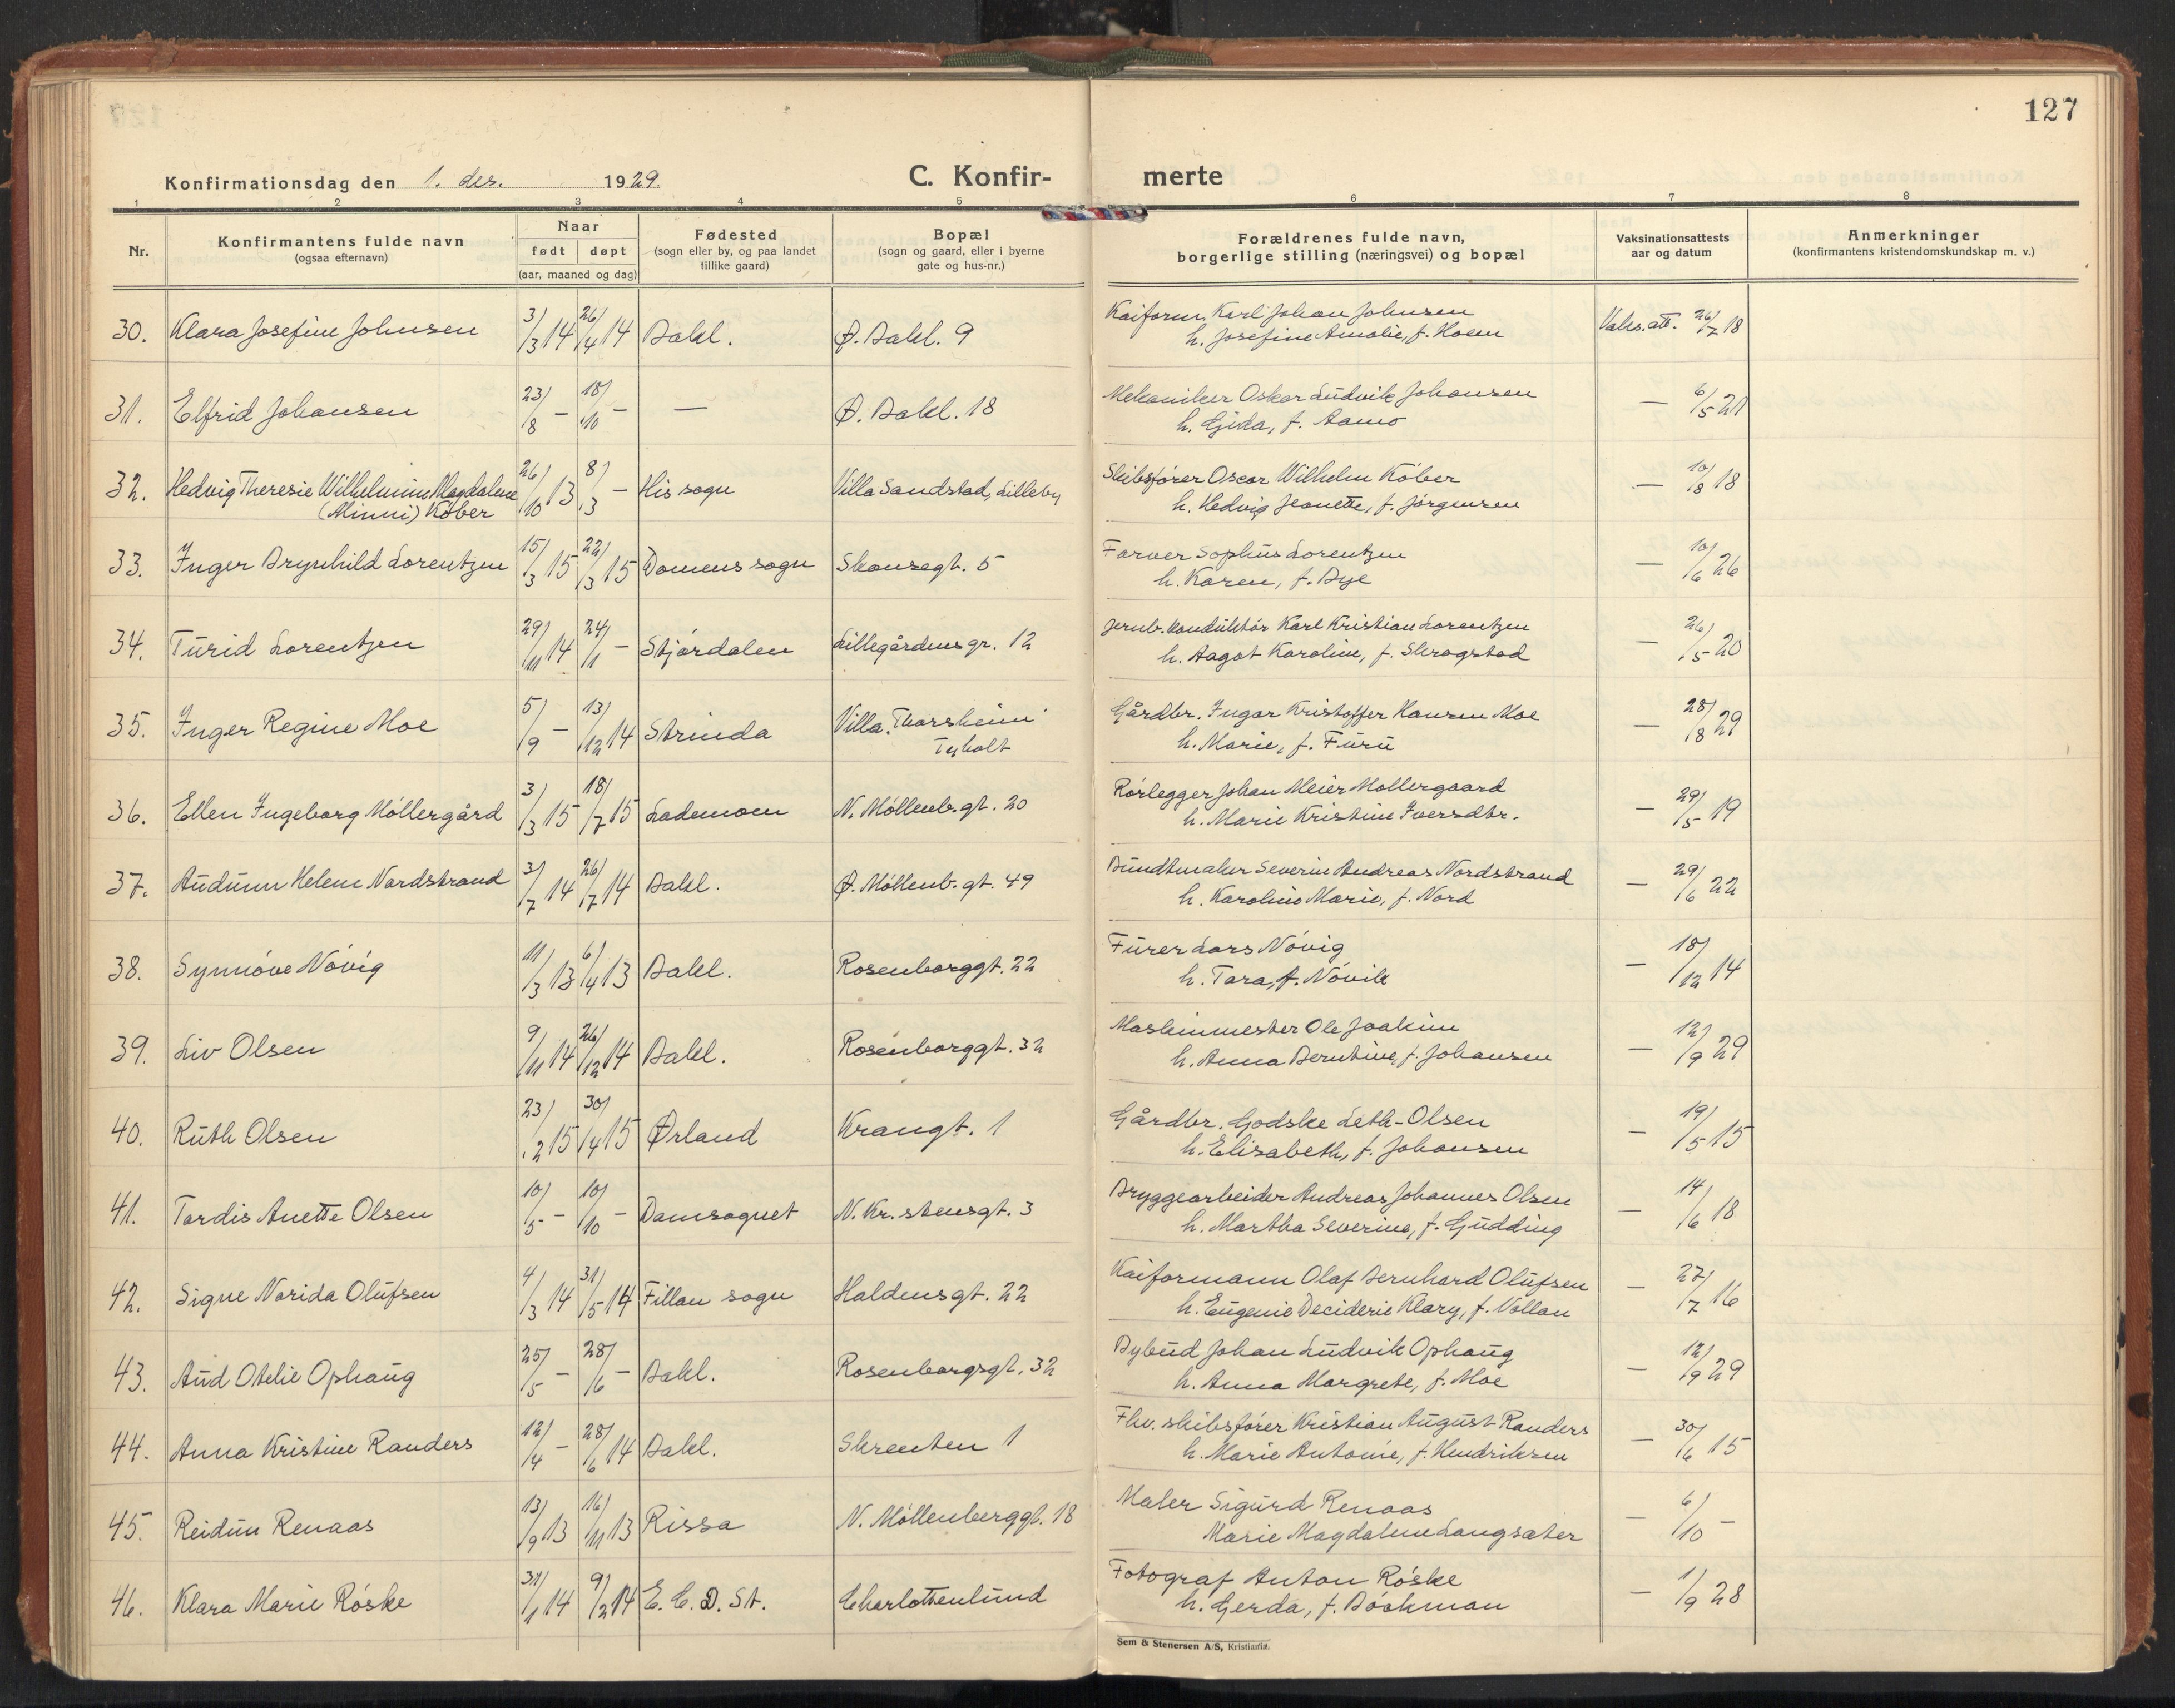 127
Konfirmationsdag den 1. des. 1929.
C. Konfir-merte
1 2 3 4 5 6 7 8
Nr.
Konfirmantens fulde navn
(ogsaa efternavn)
Naar
født døpt
(aar, maaned og dag)
Fødested
(sogn eller by, og paa landet
tillike gaard)
Bopæl
(sogn og gaard, eller i byerne
gate og hus-nr.)
Forældrenes fulde navn,
borgerlige stilling (næringsvei) og bopæl
Vaksinationsattests
aar og datum
Anmerkninger
(konfirmantens kristendomskundskap m. v.)
30. Klara Josefine Johnsen 3/3 14 26/4 14 Bakl. Ø. Bakl. 9 Kaiform. Karl Johan Johnsen Vaks. att. 26/7 18
h. Josefine Amalie, f. Hoem
31. Elfrid Johansen 23/8 – 18/10 – — Ø. Bakl. 18 Mekaniker Oskar Ludvik Johansen — 6/5 21
h. Gida, f. Aamo
32. Hedvig Theresie Wilhelmine Magdalene 26/10 13 8/3 – His sogn Villa Sandstad, Lilleby Skibsfører Oscar Wilhelm Köber — 10/8 18
(Minni) Köber h. Hedvig Jeanette, f. Jörgensen
33. Inger Brynhild Lorentzen 15/3 15 22/3 15 Domens sogn Skansegt. 5 Farver Sophus Lorentzen — 10/6 26
h. Karen, f. Bye
34. Turid Lorentzen 29/11 14 24/1 – Stjördalen Lillegårdens gr. 12 Jernb. konduktör Karl Kristian Lorentzen — 26/5 20
h. Aagot Karoline, f. Skrogstad
35. Inger Regine Moe 5/9 – 13/12 14 Strinda Villa "Thorsheim" Gårdbr. Ingar Kristoffer Hansen Moe — 28/8 29
Tyholt h. Marie, f. Furu
36. Ellen Ingeborg Möllergård 3/3 15 18/7 15 Lademoen N. Möllenb. gt. 20 Rörlegger Johan Meier Mollergaard — 29/5 19
h. Marie Kristine Iversdtr.
37. Audunn Helene Nordstrand 3/7 14 26/7 14 Bakl. Ø. Möllenb. gt. 49 Bundtmaker Severin Andreas Nordstrand — 29/6 22
h. Karoline Marie, f. Nord
38. Synnöve Növig 11/3 13 6/4 13 Bakl. Rosenborggt. 22 Furer Lars Növig — 18/12 14
h. Tara, f. Növik
39. Liv Olsen 9/11 14 26/12 14 Bakl. Rosenborggt. 32 Maskinmester Ole Joakim — 12/9 29
h. Anna Berntine, f. Johansen
40. Ruth Olsen 23/2 15 30/4 15 Ørland Krangt. 1 Gårdbr. Godske Leth-Olsen — 19/5 15
h. Elisabeth, f. Johansen
41. Tordis Anette Olsen 10/5 – 10/10 – Domsognet N. Kr.stensgt. 3 Bryggearbeider Andreas Johannes Olsen — 14/6 18
h. Martha Severine, f. Gudding
42. Signe Narida Olufsen 4/3 14 31/5 14 Fillan sogn Haldensgt. 22 Kaiformann Olaf Bernhard Olufsen — 27/7 16
h. Eugenie Deciderie Klary, f. Vollan
43. Aud Otelie Ophaug 25/5 – 28/6 – Bakl. Rosenborgsgt. 32 Bybud Johan Ludvik Ophaug — 12/9 29
h. Anna Margrete, f. Moe
44. Anna Kristine Randers 12/4 – 28/6 14 Bakl. Skrenten 1 Fhv. skibsfører Kristian August Randers — 30/6 15
h. Marie Antonie, f. Hendriksen
45. Reidun Renaas 13/9 13 16/11 13 Rissa N. Möllenberggt. 18 Maler Sigurd Renaas — 6/10 –
Marie Magdalene Langsater
46. Klara Marie Röske 31/1 14 9/2 14 E. C. D. St. Charlottenlund Fotograf Anton Röske — 1/9 28
h. Gerda, f. Böckman
Sem & Stenersen A/S, Kristiania.